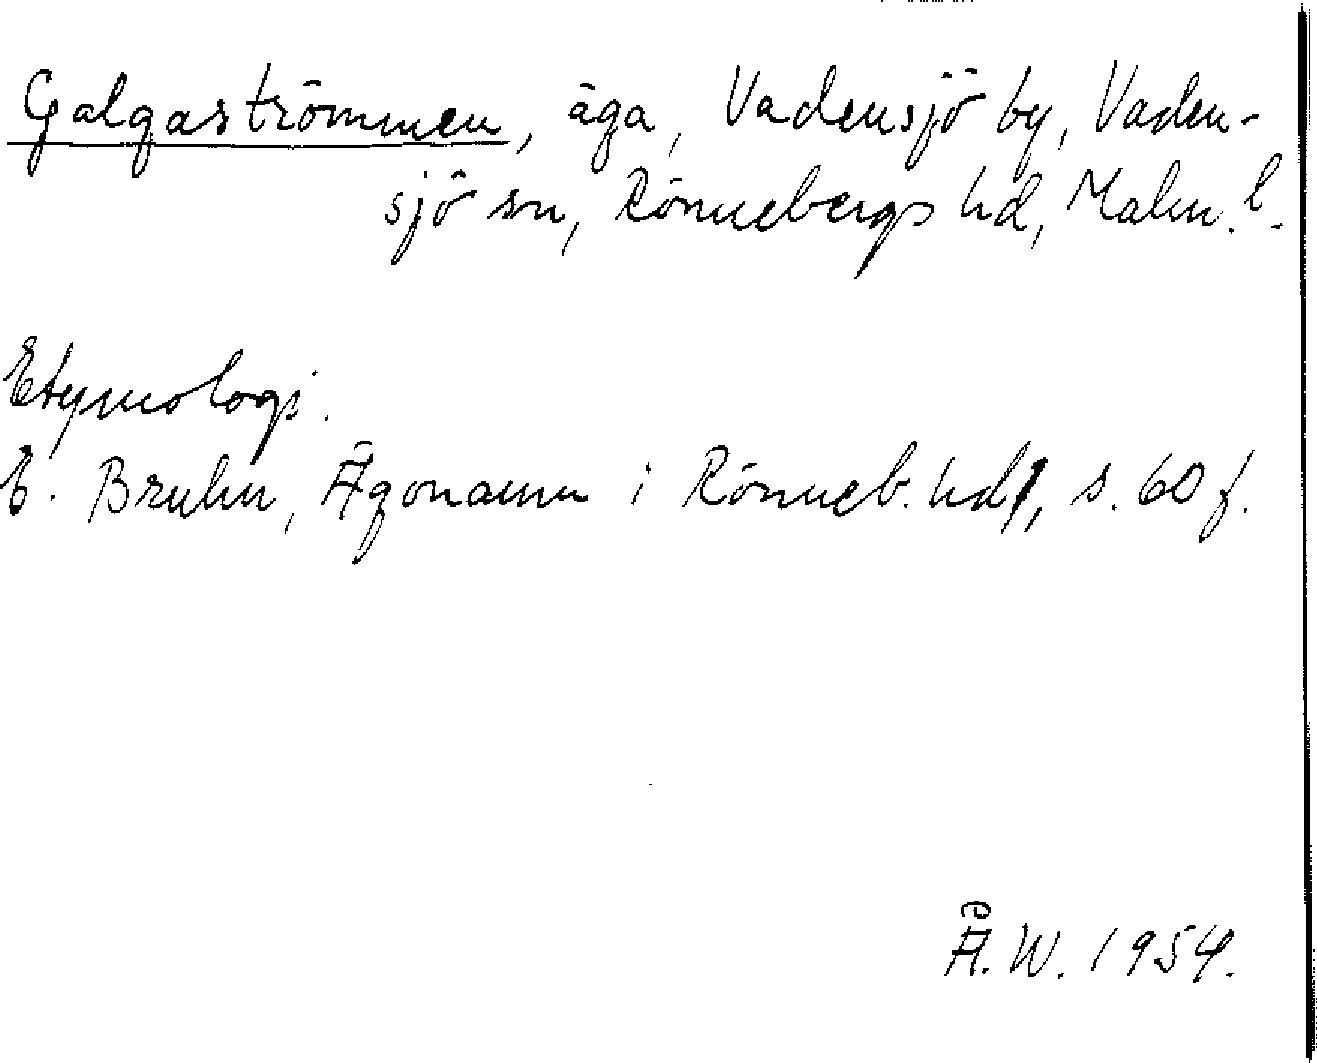 Galgaströmmen, äga, Vadensjö by, Vaden-
sjö sn, Rönnebergs hd, Malm. l.
Etymologi.
E. Bruhn, Ägonamn i Rönneb. hd, s. 60 f.
Å. W. 1954.